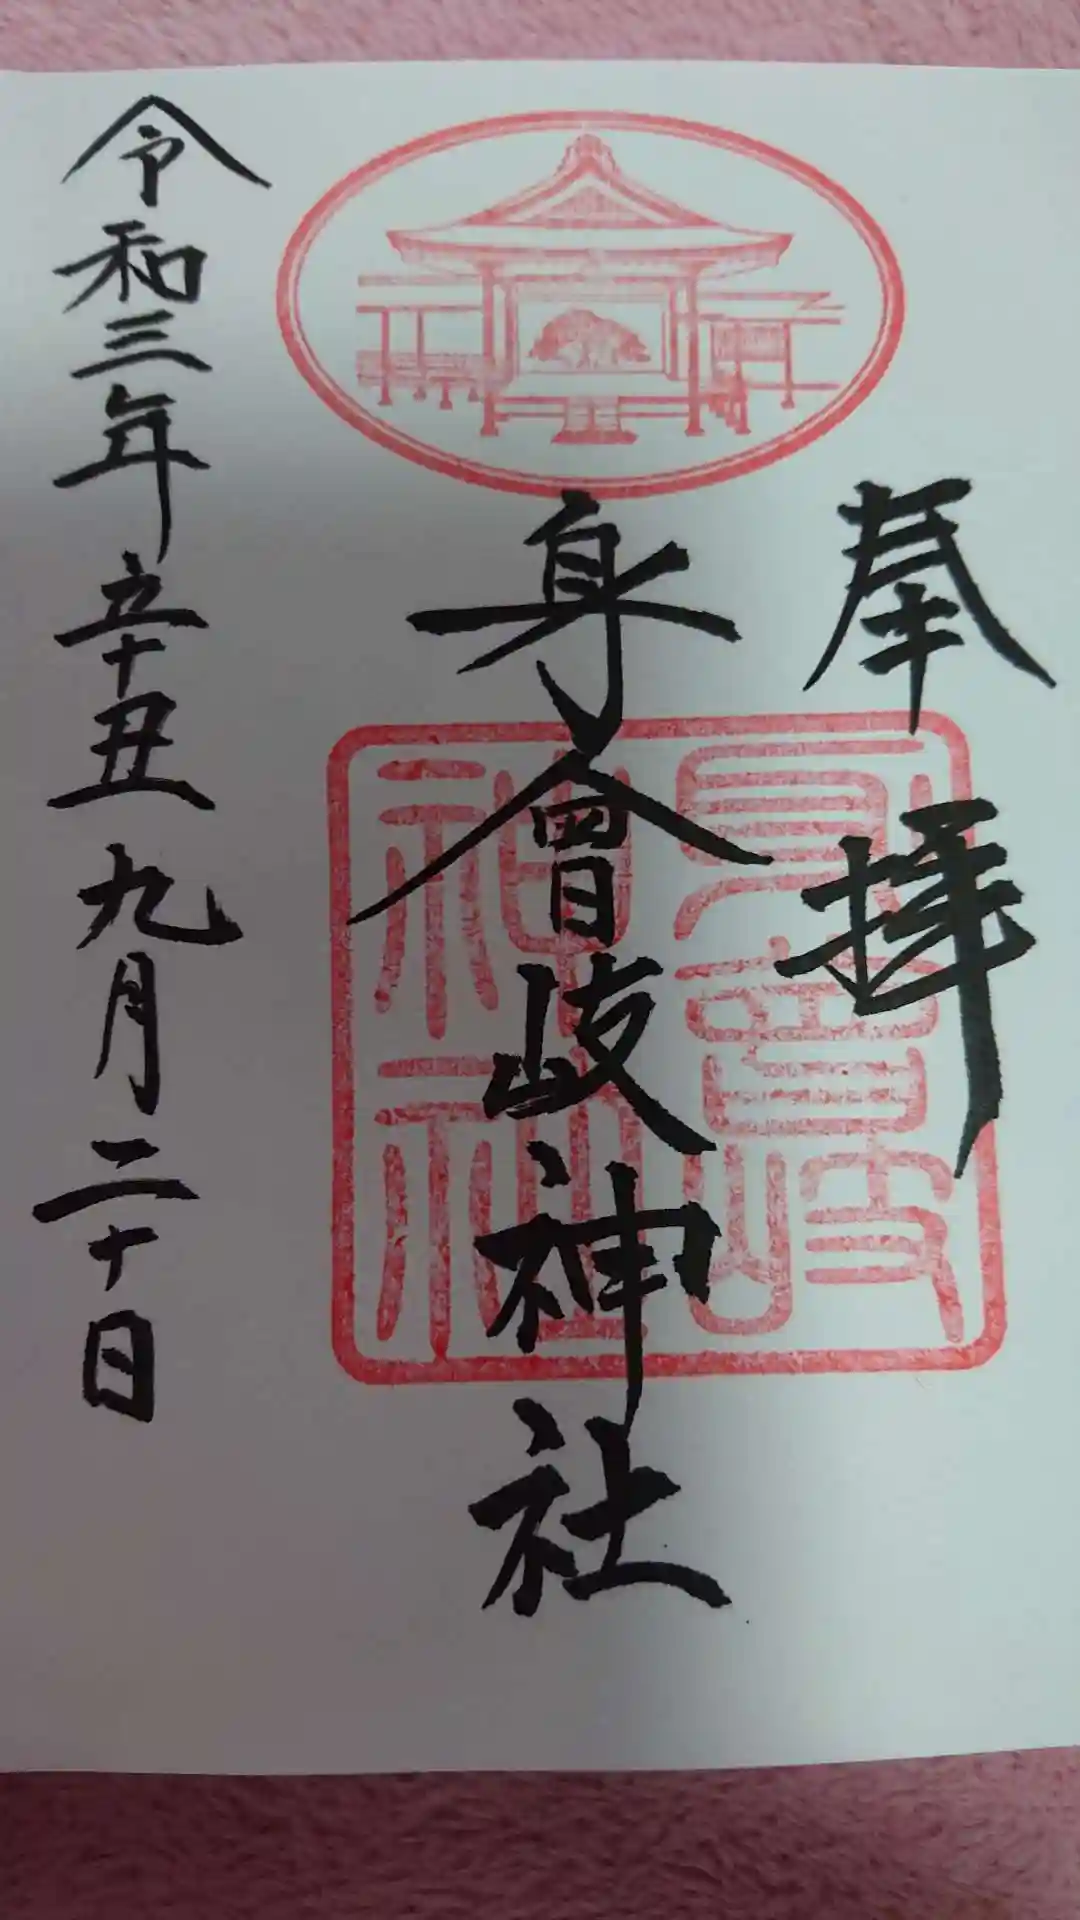 奉拝
身曾岐神社
身曾岐
神社
令和三年辛丑九月二十日